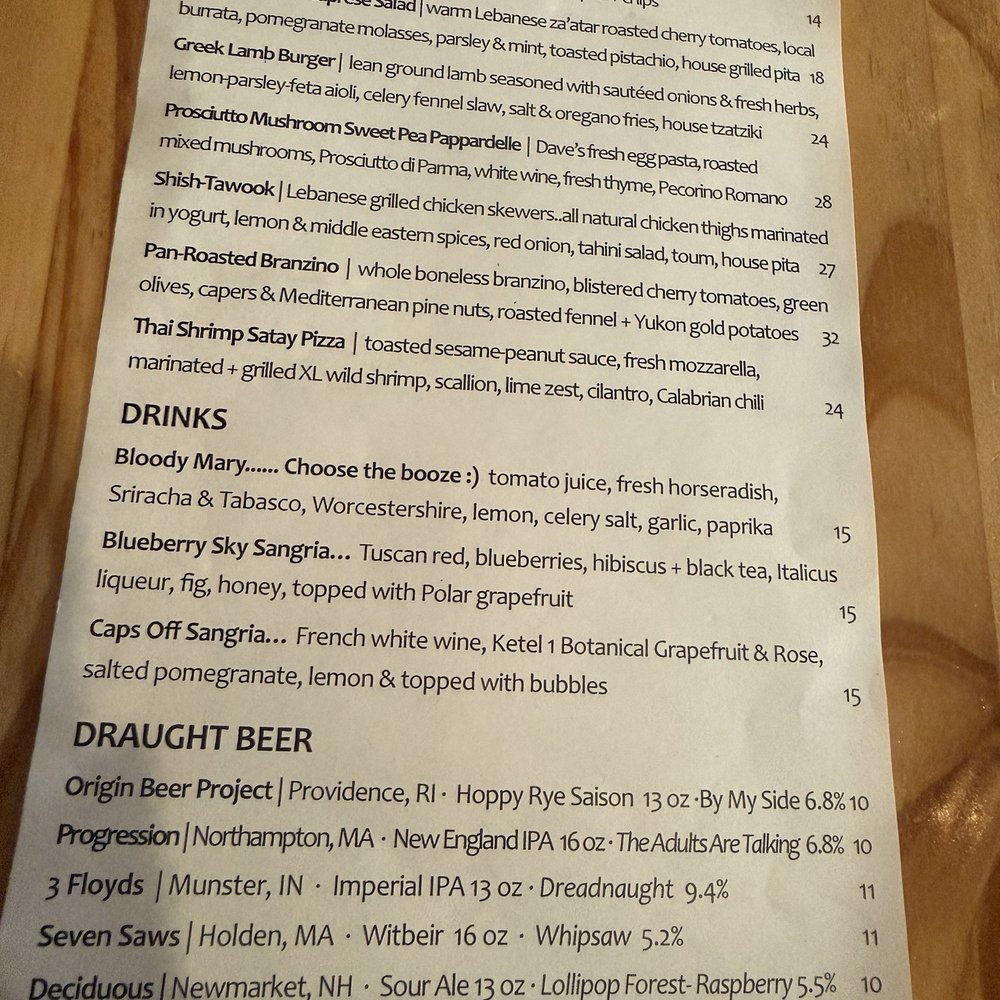 chips 14
Salad | warm Lebanese za'atar roasted cherry tomatoes, local
burrata, pomegranate molasses, parsley & mint, toasted pistachio, house grilled pita 18
Greek Lamb Burger | lean ground lamb seasoned with sautéed onions & fresh herbs,
lemon-parsley-feta aioli, celery fennel slaw, salt & oregano fries, house tzatziki 24
Prosciutto Mushroom Sweet Pea Pappardelle | Dave's fresh egg pasta, roasted
mixed mushrooms, Prosciutto di Parma, white wine, fresh thyme, Pecorino Romano 28
Shish-Tawook | Lebanese grilled chicken skewers..all natural chicken thighs marinated
in yogurt, lemon & middle eastern spices, red onion, tahini salad, toum, house pita 27
Pan-Roasted Branzino | whole boneless branzino, blistered cherry tomatoes, green
olives, capers & Mediterranean pine nuts, roasted fennel + Yukon gold potatoes 32
Thai Shrimp Satay Pizza | toasted sesame-peanut sauce, fresh mozzarella,
marinated + grilled XL wild shrimp, scallion, lime zest, cilantro, Calabrian chili 24
DRINKS
Bloody Mary...... Choose the booze :) tomato juice, fresh horseradish,
Sriracha & Tabasco, Worcestershire, lemon, celery salt, garlic, paprika 15
Blueberry Sky Sangria... Tuscan red, blueberries, hibiscus + black tea, Italicus
liqueur, fig, honey, topped with Polar grapefruit 15
Caps Off Sangria... French white wine, Ketel 1 Botanical Grapefruit & Rose,
salted pomegranate, lemon & topped with bubbles 15
DRAUGHT BEER
Origin Beer Project | Providence, RI · Hoppy Rye Saison 13 oz ·By My Side 6.8% 10
Progression | Northampton, MA · New England IPA 16 oz · The Adults Are Talking 6.8% 10
3 Floyds | Munster, IN · Imperial IPA 13 oz · Dreadnaught 9.4% 11
Seven Saws | Holden, MA · Witbeir 16 oz · Whipsaw 5.2% 11
Deciduous | Newmarket, NH · Sour Ale 13 oz · Lollipop Forest- Raspberry 5.5% 10